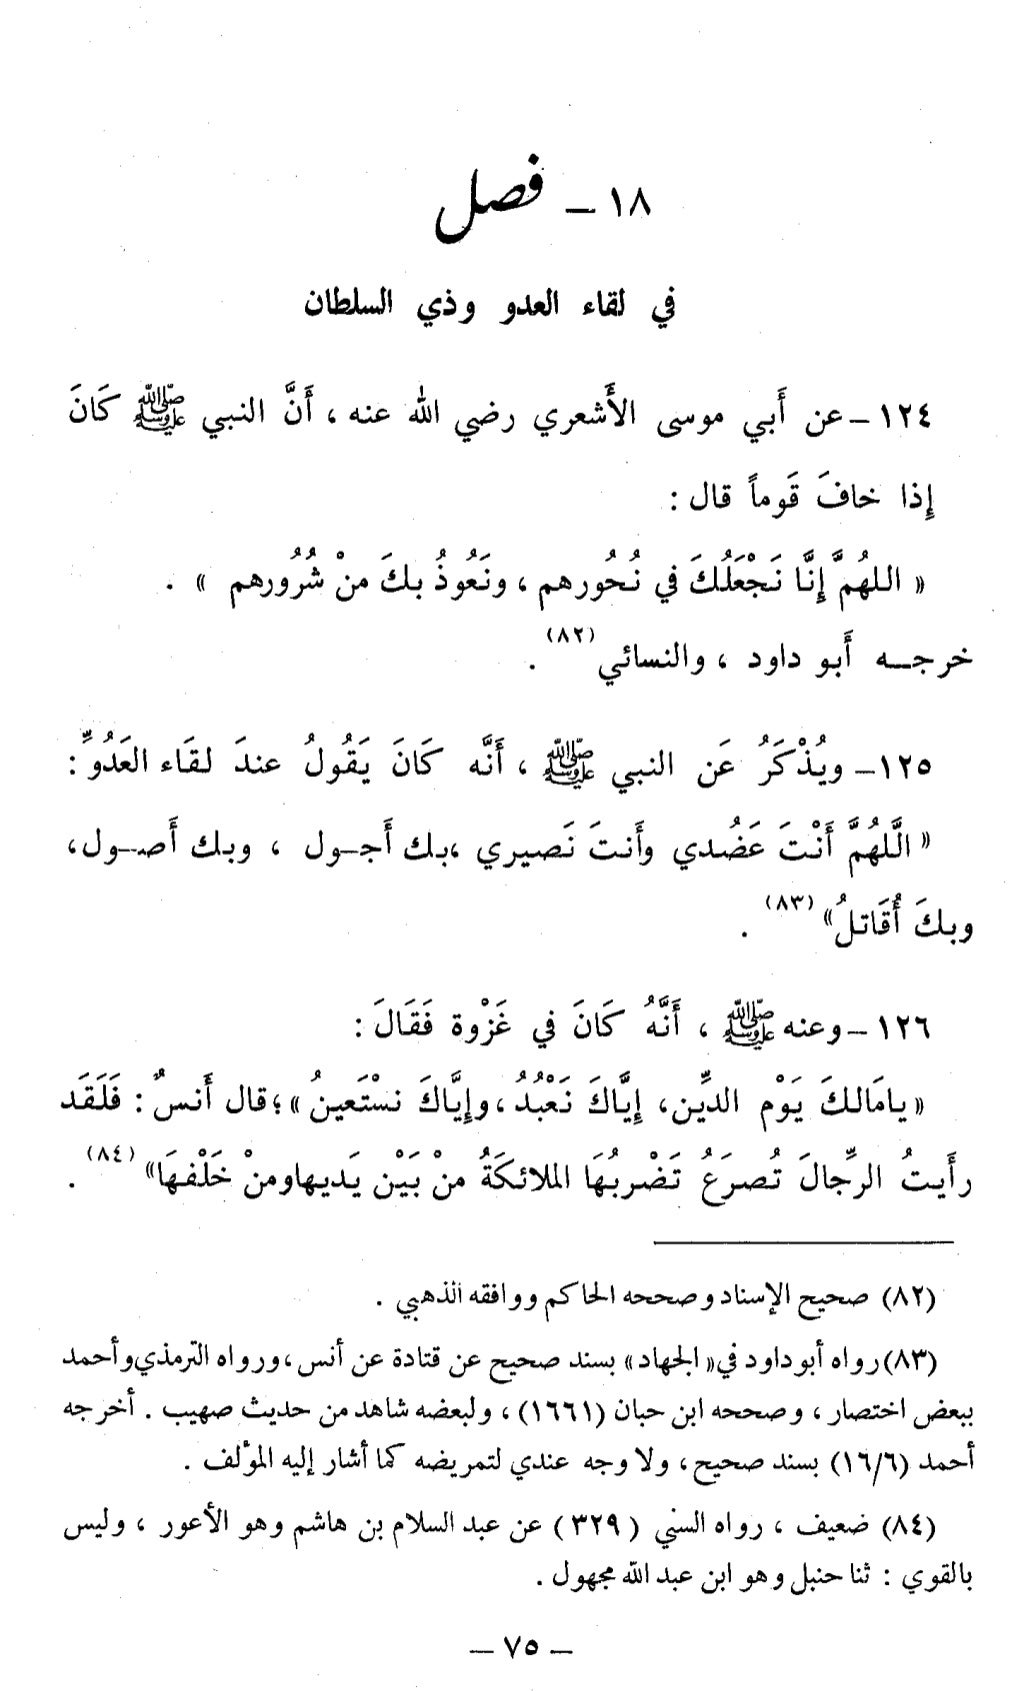 ١٨ - فصل
في لقاء العدو وذي السلطان
١٢٤ - عن أَبي موسى الأَشعري رضي الله عنه ، أَنَّ النبي ﷺ كَانَ
إِذا خافَ قَوماً قال :
« اللهُمَّ إِنَّا نَجْعَلُكَ في نُحُورهم ، ونَعُوذُ بكَ منْ شُرُورهم » .
خرجـه أَبو داود ، والنسائي (٨٢) .
١٢٥ - ويُذْكَرُ عَن النبي ﷺ ، أَنَّه كَانَ يَقُولُ عندَ لقَاء العَدُوِّ :
« الَّلهُمَّ أَنْتَ عَضُدي وأَنتَ نَصيري ،بك أَجـول ، وبك أَصـول،
وبكَ أُقَاتلُ» (٨٣) .
١٢٦ - وعنه ﷺ ، أَنَّهُ كَانَ في غَزْوة فَقَالَ :
« يامَالكَ يَوْم الدِّين، إِيَّاكَ نَعْبُدُ ،وإِيَّاكَ نسْتَعينُ »؛قال أَنسٌ : فَلَقَد
رأَيتُ الرِّجالَ تُصرَعُ تَضْربُهَا الملائكَةُ منْ بَيْن يَديهاومنْ خَلْفهَا» (٨٤) .
(٨٢) صحيح الإسناد وصححه الحاكم ووافقه الذهبي .
(٨٣) رواه أبو داود في« الجهاد» بسند صحيح عن قتادة عن أنس ،ورواه الترمذي وأحمد
ببعض اختصار ، وصححه ابن حبان (١٦٦١) ، ولبعضه شاهد من حديث صهيب . أخرجه
أحمد (١٦/٦) بسند صحيح ، ولا وجه عندي لتمريضه كما أشار إليه المؤلف .
(٨٤) ضعيف ، رواه السني ( ٣٢٩ ) عن عبد السلام بن هاشم وهو الأعور ، وليس
بالقوي : ثنا حنبل وهو ابن عبد الله مجهول .
- ٧٥ -